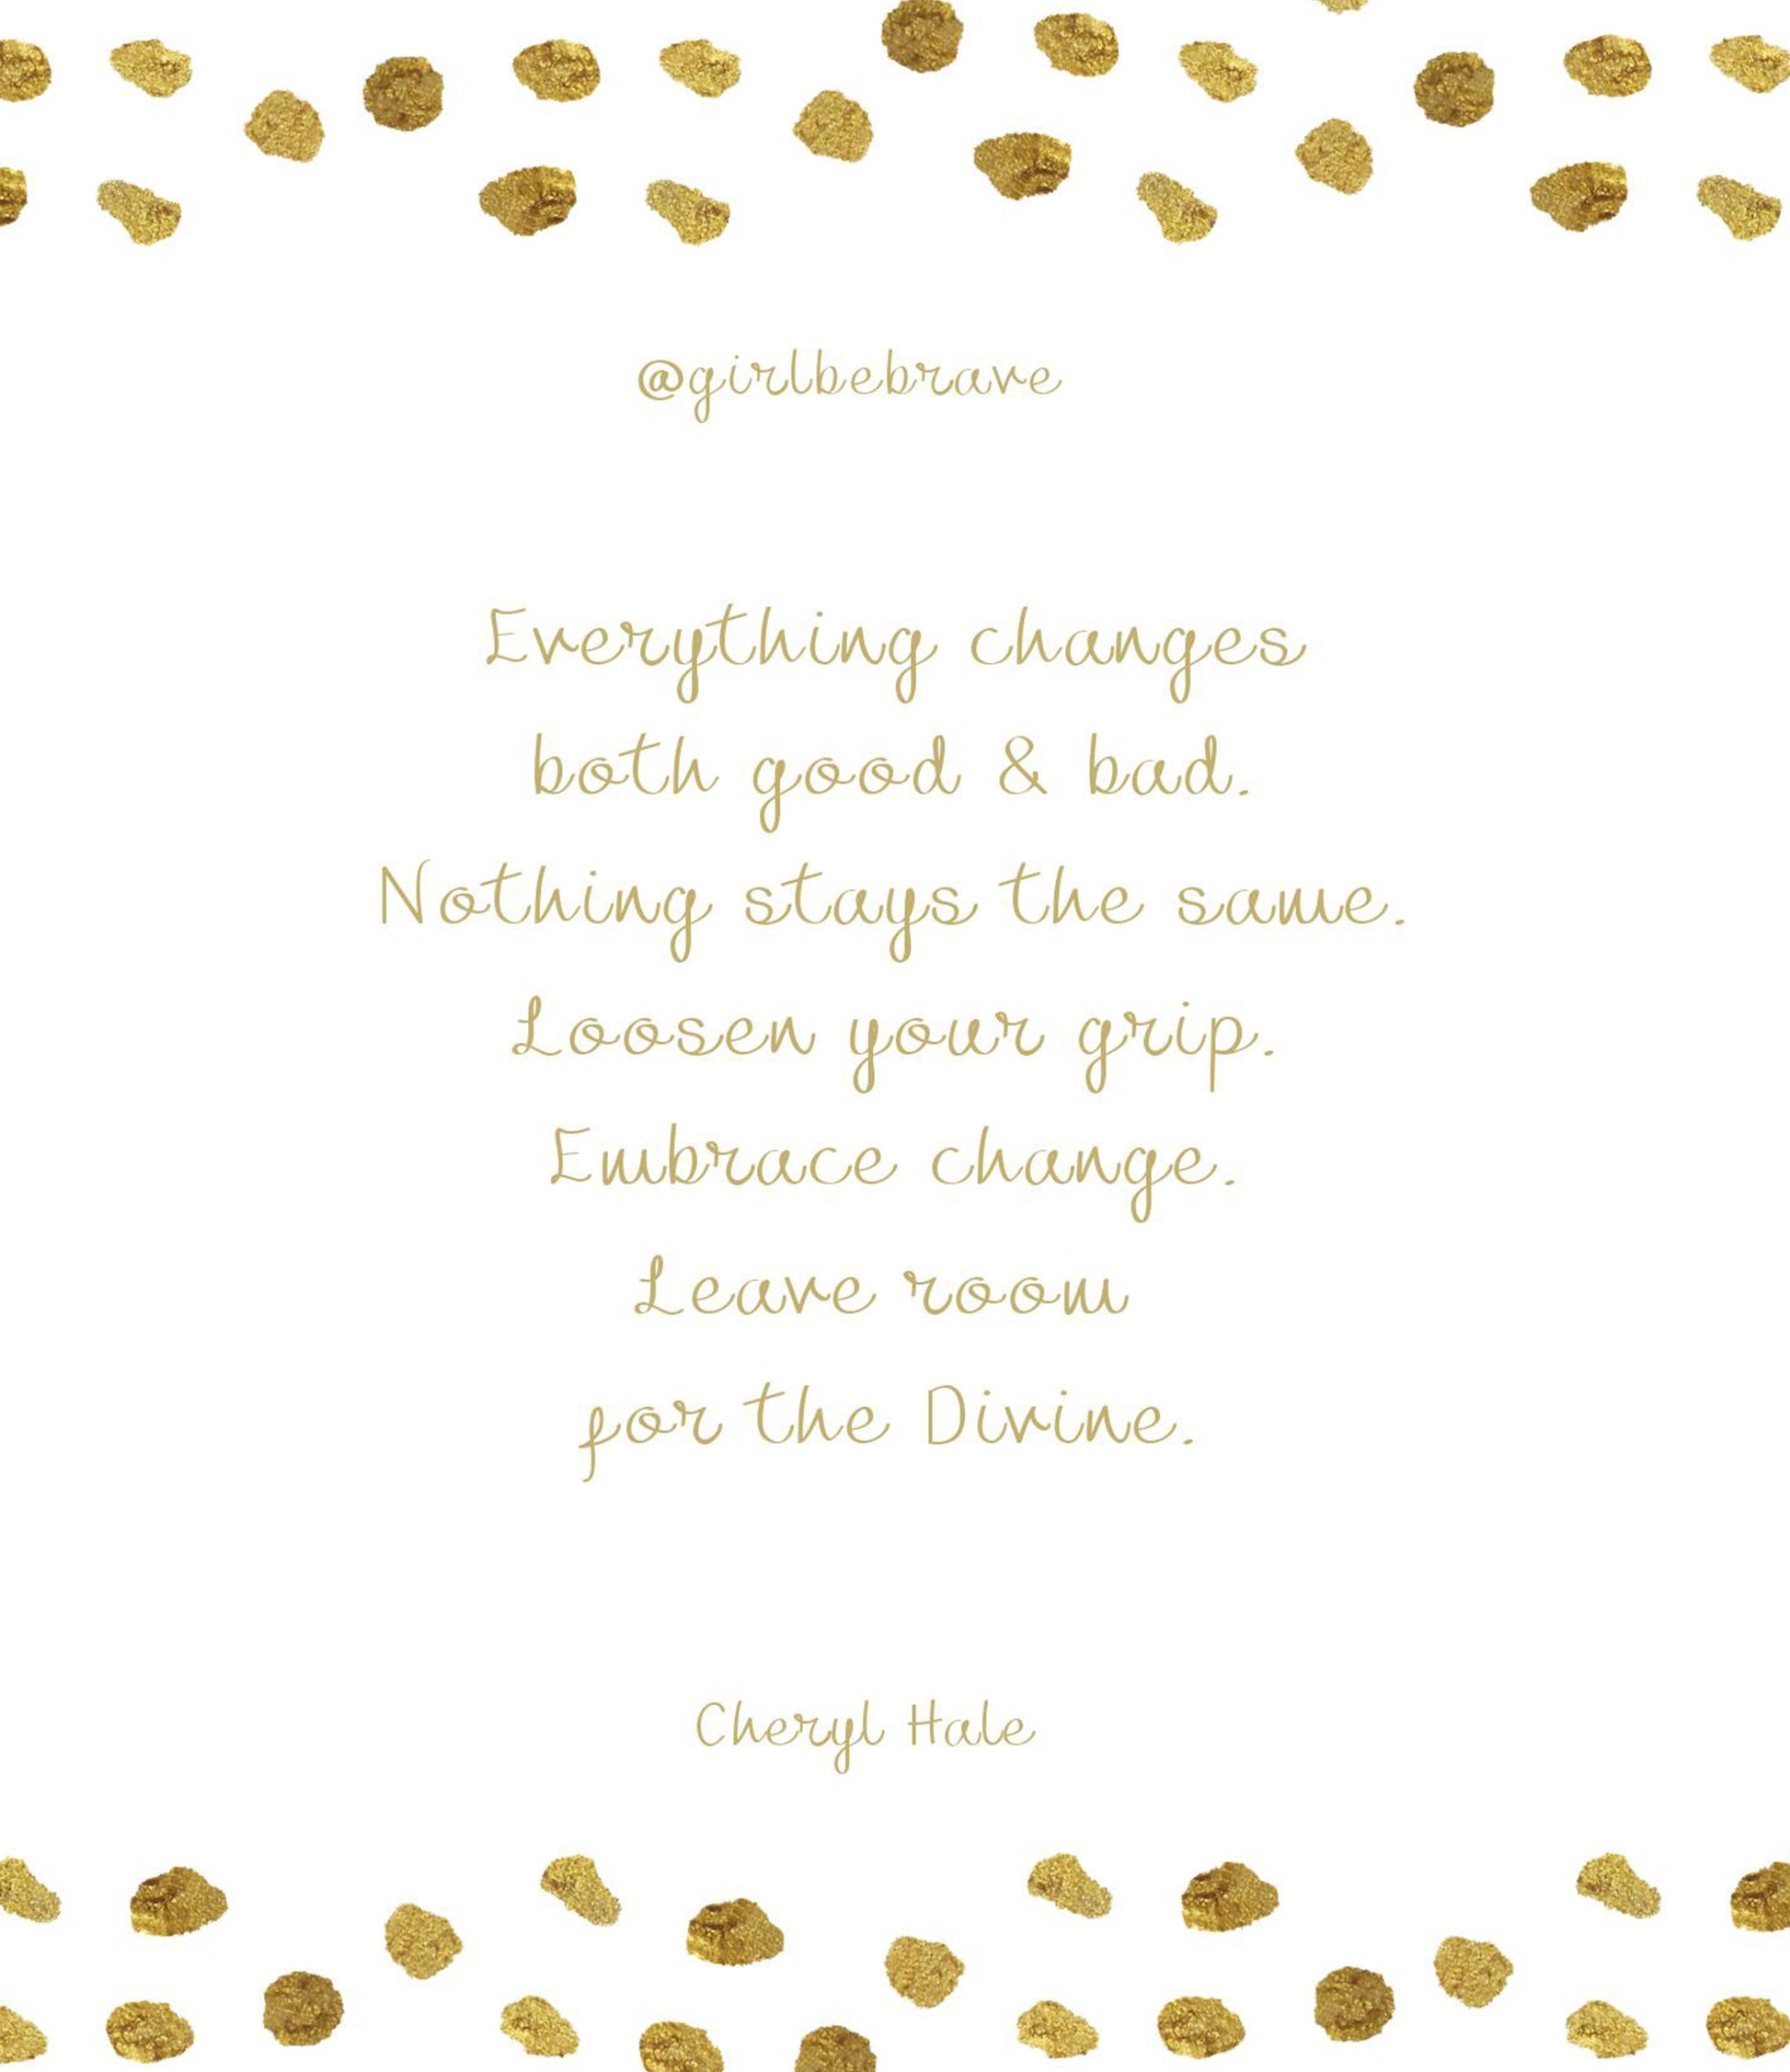 @girlbebrave
Everything changes
both good & bad.
Nothing stays the same.
Loosen your grip.
Embrace change.
Leave room
for the Divine.
Cheryl Hale